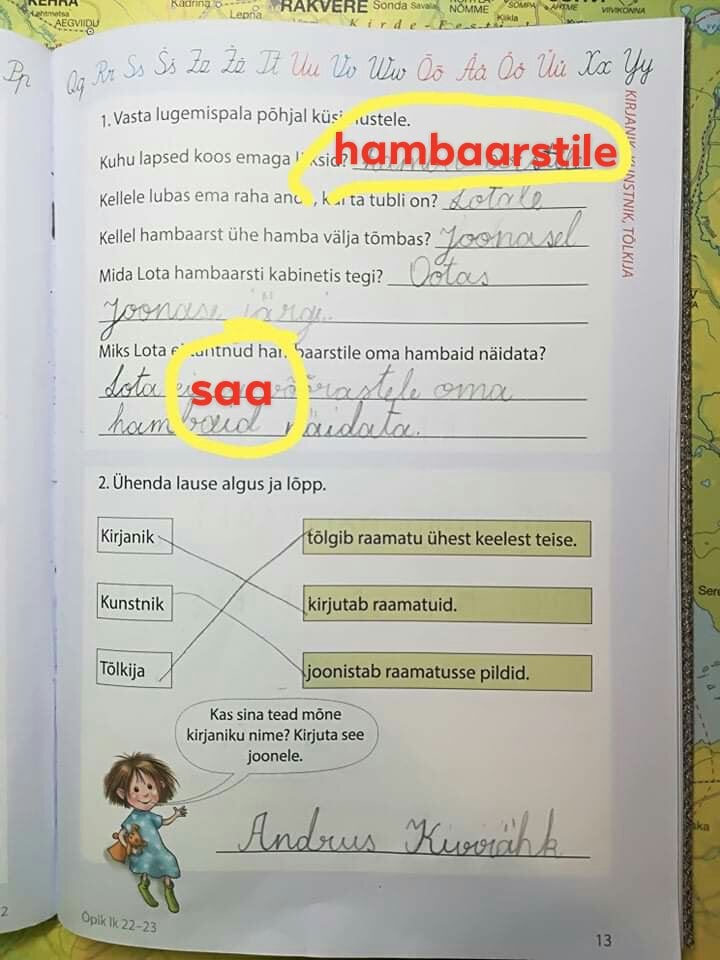 KEHRA
Lehtmetsa
AEGVIIDU
Kadrina
Lepna
RAKVERE
Sonda
Savala
NÕMME
SOMPA
Kiikla
VIIVIKONNA
Kirde-Eesti
Pp Qq Rr Ss Šš Zz Žž Tt Uu Vv Ww Õõ Ää Öö Üü Xx Yy
1. Vasta lugemispala põhjal küsimustele.
Kuhu lapsed koos emaga läksid? hambaarstile
Kellele lubas ema raha anda, kui ta tubli on? Lotale
Kellel hambaarst ühe hamba välja tõmbas? Joonasel
Mida Lota hambaarsti kabinetis tegi? Ootas
Joonase järgi.
Miks Lota ei tahtnud hambaarstile oma hambaid näidata?
Lota ei saa võõrastele oma
hambaid näidata.
KIRJANIK, KUNSTNIK, TÕLKIJA
2. Ühenda lause algus ja lõpp.
Kirjanik
tõlgib raamatu ühest keelest teise.
Kunstnik
kirjutab raamatuid.
Tõlkija
joonistab raamatusse pildid.
Kas sina tead mõne
kirjaniku nime? Kirjuta see
joonele.
Andrus Kivirähk
Õpik lk 22–23
13